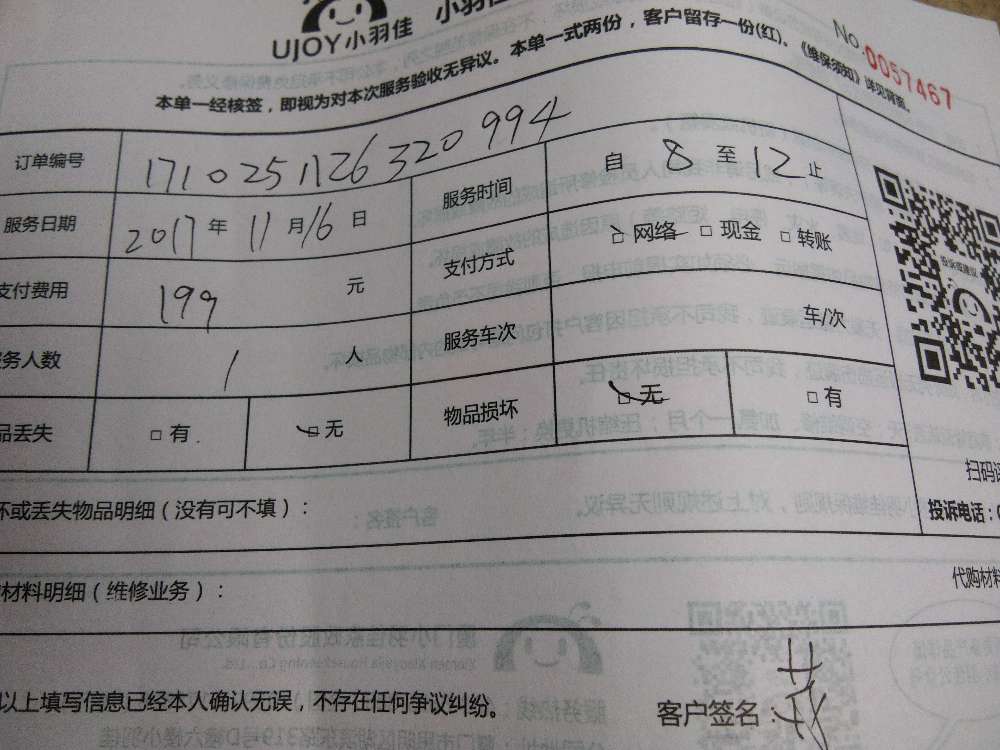 UJOY小羽佳 小羽佳
No.0057467
本单一经核签，即视为对本次服务验收无异议。本单一式两份，客户留存一份(红)。《维保须知》详见背面。
订单编号 1710251126320994
服务日期 2017年 11月16日 服务时间 自 8 至 12 止
支付费用 199 元 支付方式 □ 网络 □ 现金 □ 转账
务人数 1 人 服务车次 车/次
品丢失 □ 有 □ 无 物品损坏 □ 无 □ 有
投诉或建议
扫码
坏或丢失物品明细（没有可不填）：
投诉电话：0
材料明细（维修业务）：
代购材料
以上填写信息已经本人确认无误，不存在任何争议纠纷。
客户签名：